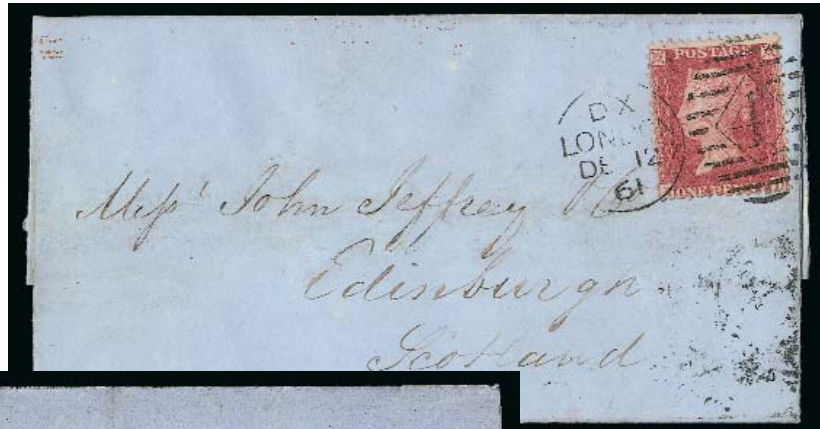 POSTAGE
DX
LONDON
DE 12
61
ONE PE
Mess^rs John Jeffrey & Co
Edinburgh
Scotland